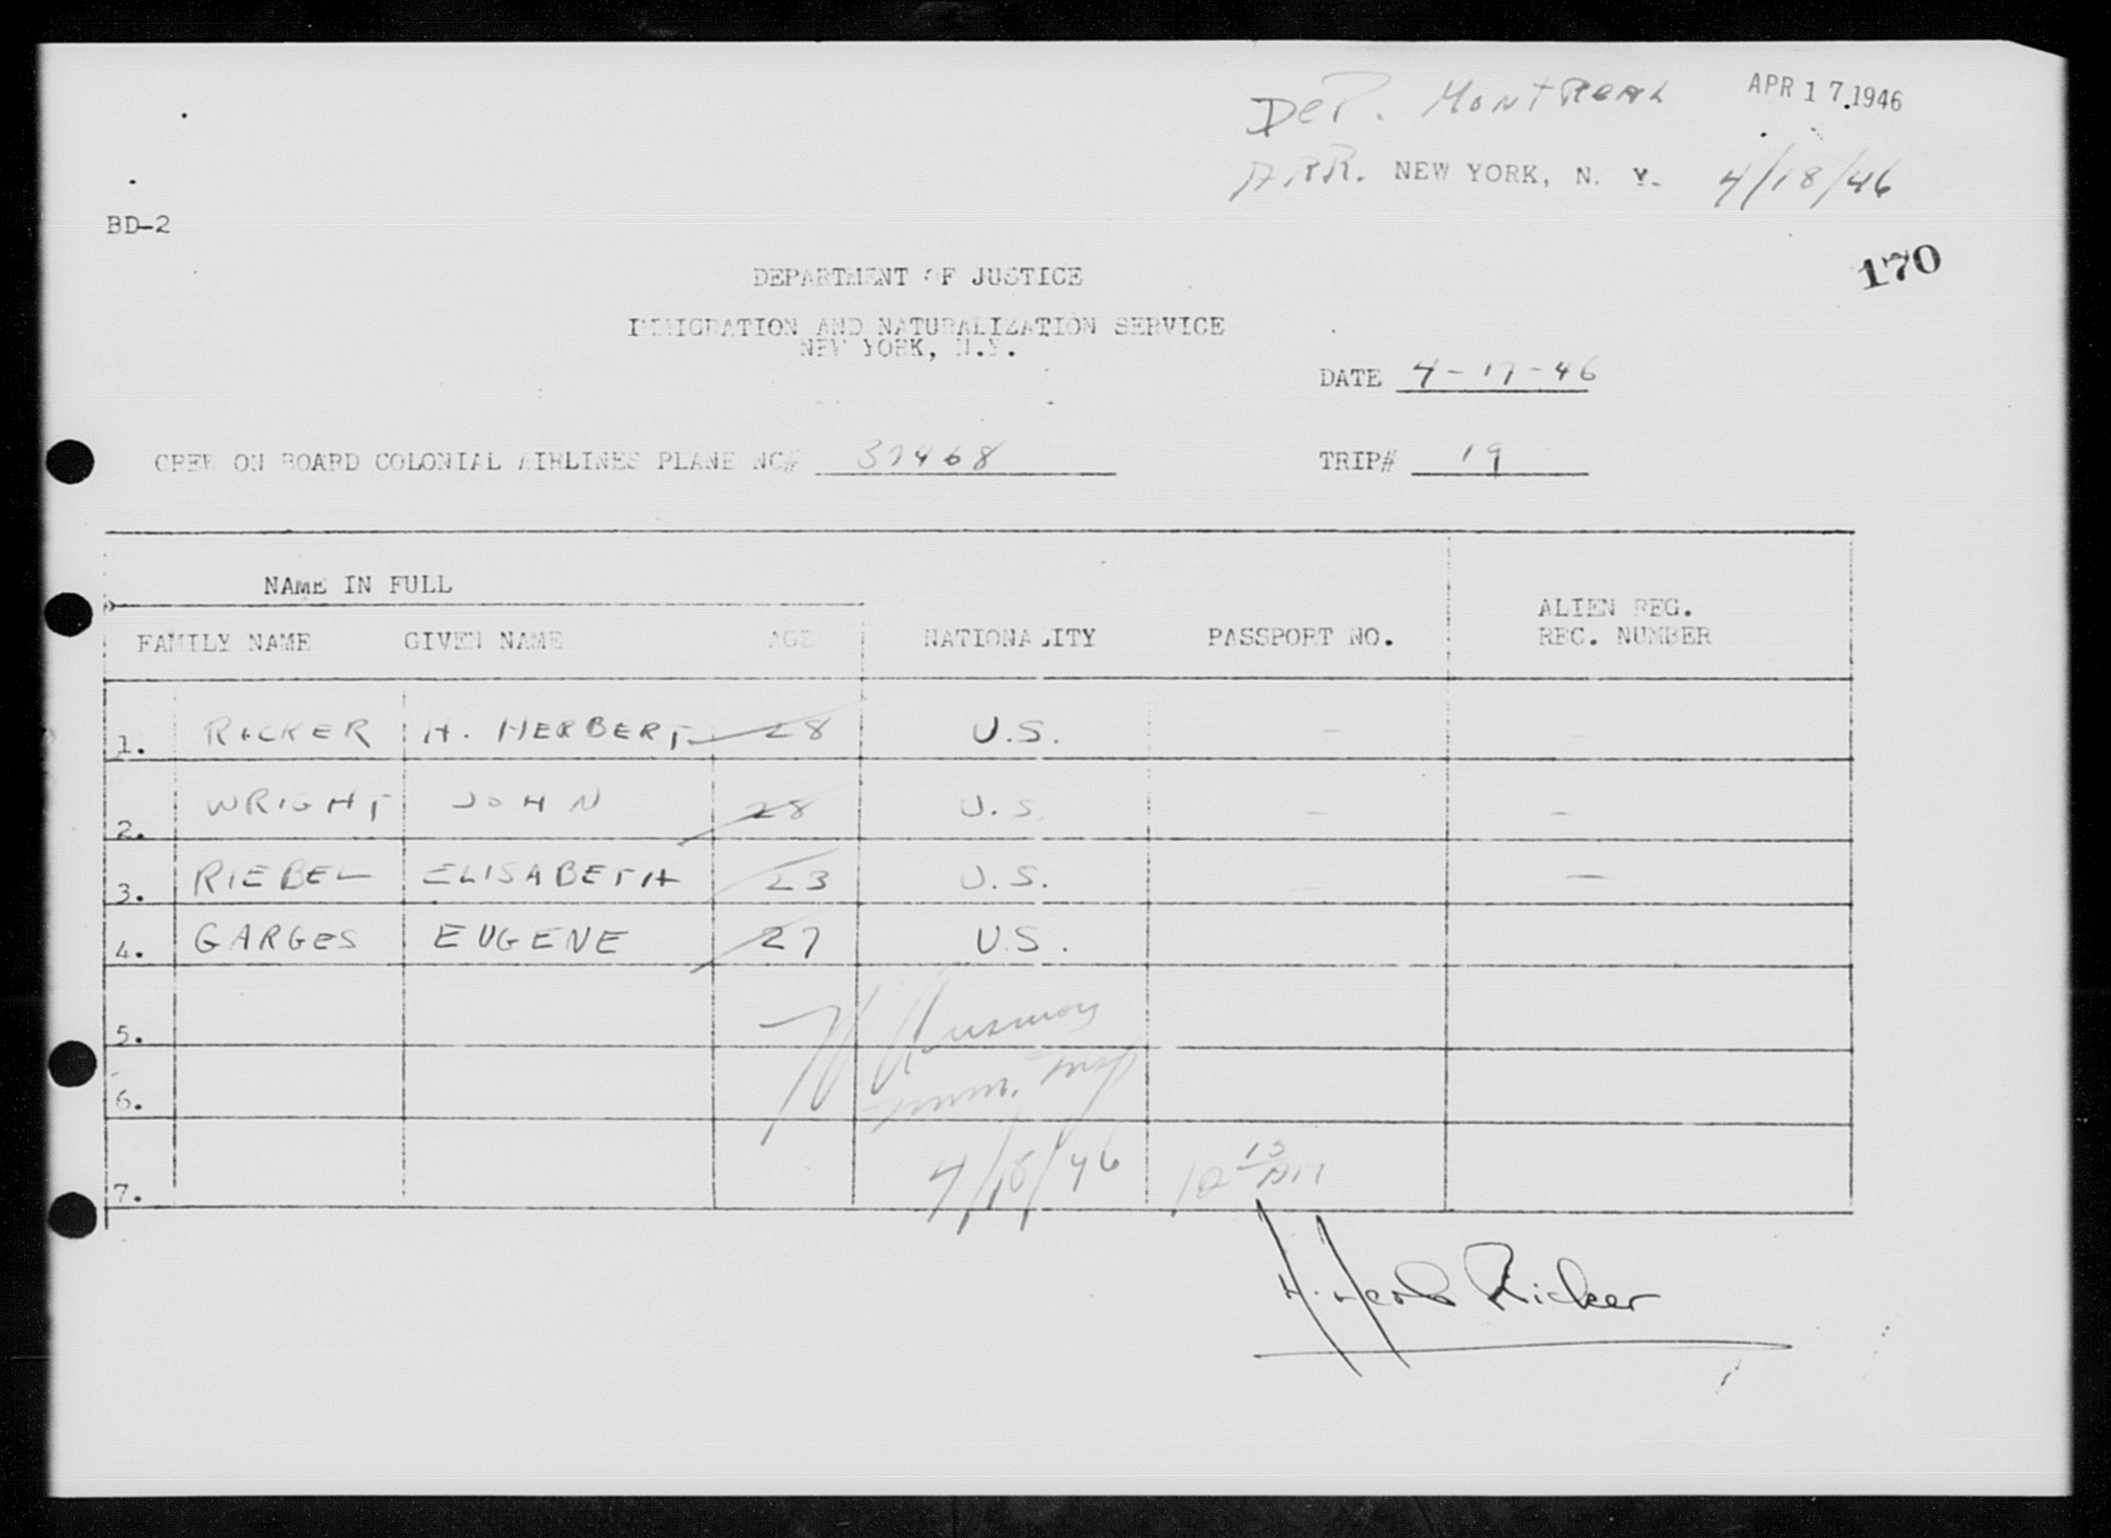 DEP. MONTREAL APR 17.1946
ARR. NEW YORK, N. Y. 4/18/46
BD-2
170
DEPARTMENT OF JUSTICE
IMMIGRATION AND NATURALIZATION SERVICE
NEW YORK, N.Y.
DATE 4-17-46
CREW ON BOARD COLONIAL AIRLINES PLANE NC# 37468 TRIP# 19
NAME IN FULL
ALIEN REG.
FAMILY NAME GIVEN NAME AGE NATIONALITY PASSPORT NO. REC. NUMBER
1. RICKER H. HERBERT 28 U.S. - -
2. WRIGHT JOHN 28 U.S. - -
3. RIEBEL ELISABETH 23 U.S. - -
4. GARGES EUGENE 27 U.S.
5.
6.
7. 4/18/46
H. Herb Ricker